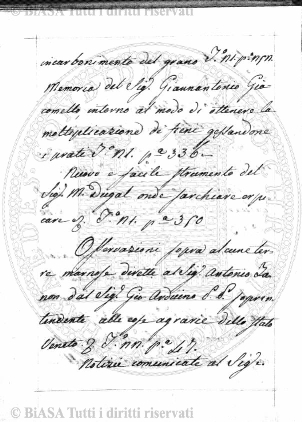 © BiASA Tutti i diritti riservati
incarbonimento del grano T.º VI. pª
Memoria del Sig.r Giannantonio Gia
comello intorno al modo di ottenere la
moltiplicazione di fieni gessandone
i prati T.º VI. pª 336
Nuovo e facile strumento del
Sig.r M. Dugat onde sarchiare erpi
care &. T.º VI. pª 350
Osservazione sopra alcune ter
re marnose dirette al Sig.r Antonio Za
non dal Sig.r Gio. Arduino P.P. soprin
tendente alle cose agrarie dello stato
Veneto. &. pª 47.
Notizie comunicate al Sig.r
© BiASA Tutti i diritti riservati